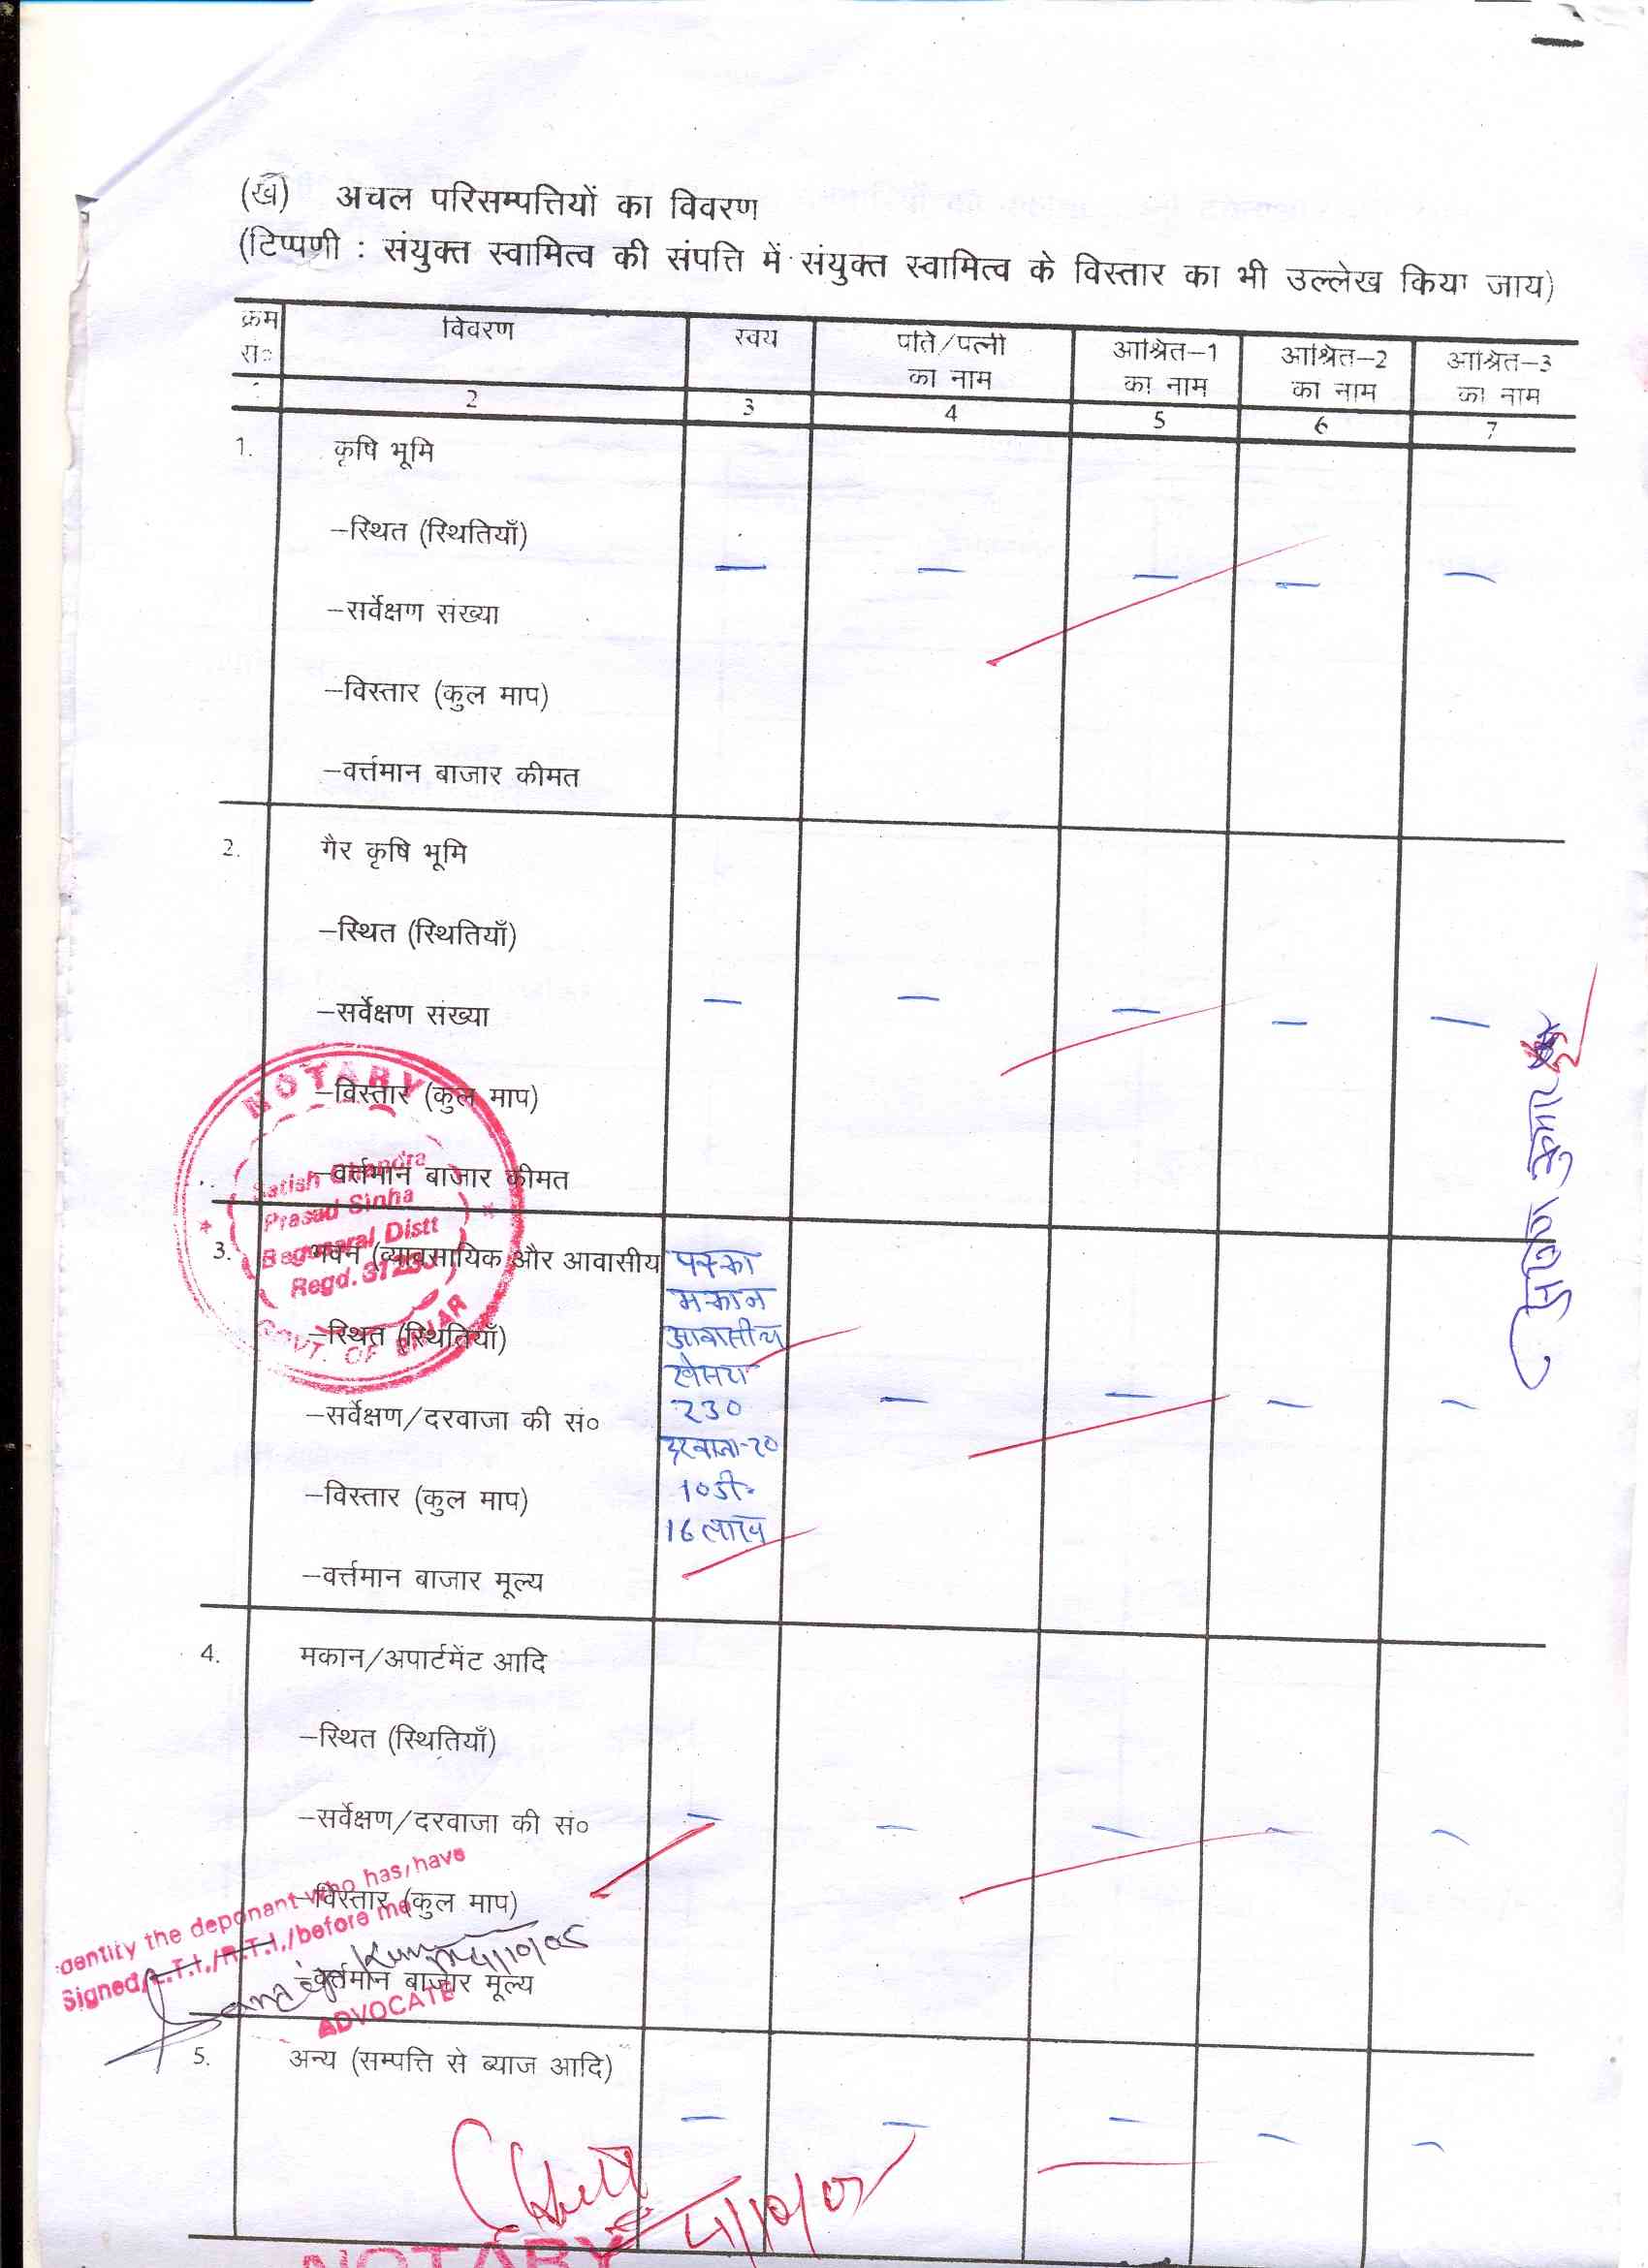 (ख) अचल परिसम्पत्तियों का विवरण
(टिप्पणी : संयुक्त स्वामित्व की संपत्ति में संयुक्त स्वामित्व के विस्तार का भी उल्लेख किया जाय)
क्रम सं० विवरण स्वयं पति/पत्नी का नाम आश्रित–1 का नाम आश्रित–2 का नाम आश्रित–3 का नाम
2 3 4 5 6 7
1. कृषि भूमि
–स्थित (स्थितियाँ)
— — — — —
–सर्वेक्षण संख्या
–विस्तार (कुल माप)
–वर्त्तमान बाजार कीमत
2. गैर कृषि भूमि
–स्थित (स्थितियाँ)
–सर्वेक्षण संख्या
— — — — —
–विस्तार (कुल माप)
–वर्त्तमान बाजार कीमत
NOTARY
Satish Chandra
Prasad Sinha
Begusarai Distt
Regd.
GOVT. OF BIHAR
3. भवन (व्यावसायिक और आवासीय
–स्थित (स्थितियाँ)
–सर्वेक्षण/दरवाजा की सं०
–विस्तार (कुल माप)
–वर्त्तमान बाजार मूल्य
पक्का
मकान
आवासीय
खेसरा
230
दरवाजा-20
10डी०
16 लाख
— — — —
4. मकान/अपार्टमेंट आदि
–स्थित (स्थितियाँ)
–सर्वेक्षण/दरवाजा की सं०
— — — — —
–विस्तार (कुल माप)
–वर्त्तमान बाजार मूल्य
identify the deponant who has/have
Signed/L.T.I./R.T.I./before me
ADVOCATE
5. अन्य (सम्पत्ति से ब्याज आदि)
— — — — —
NOTARY
कुमार